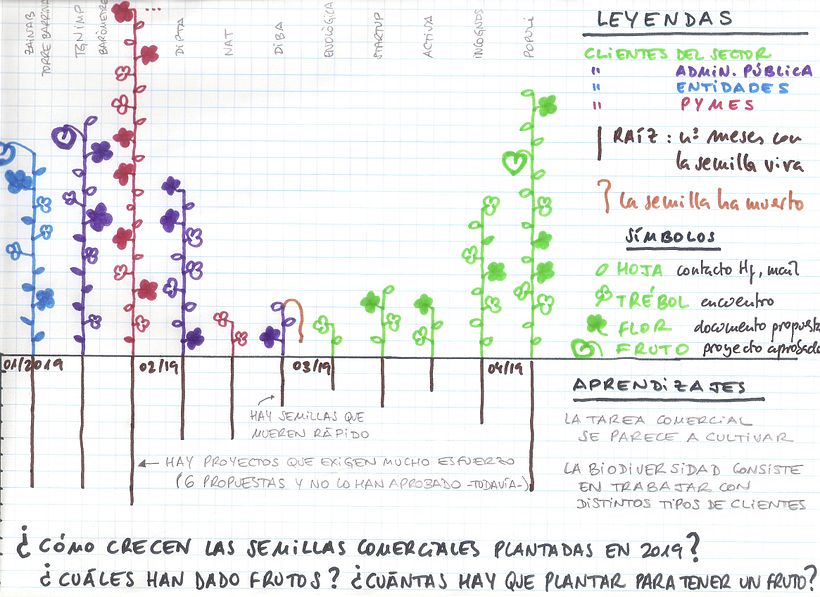 ZAINAB
TORRE BARRINA
TGN iMP
BARÒMETRE
DIPTA
NAT
DIBA
ENOLÒGICA
STARTUP
ACTIVA
INCOGNOS
POPULI
LEYENDAS
CLIENTES DEL SECTOR
" ADMIN. PÚBLICA
" ENTIDADES
" PYMES
RAÍZ : nº meses con
la semilla viva
la semilla ha muerto
SÍMBOLOS
HOJA contacto tf, mail
TRÉBOL encuentro
FLOR documento propuesta
FRUTO proyecto aprobado
01/2019
02/19
03/19
04/19
HAY SEMILLAS QUE
MUEREN RÁPIDO
HAY PROYECTOS QUE EXIGEN MUCHO ESFUERZO
(6 PROPUESTAS Y NO LO HAN APROBADO -TODAVÍA-)
APRENDIZAJES
LA TAREA COMERCIAL
SE PARECE A CULTIVAR
LA BIODIVERSIDAD CONSISTE
EN TRABAJAR CON
DISTINTOS TIPOS DE CLIENTES
¿CÓMO CRECEN LAS SEMILLAS COMERCIALES PLANTADAS EN 2019?
¿CUÁLES HAN DADO FRUTOS? ¿CUÁNTAS HAY QUE PLANTAR PARA TENER UN FRUTO?